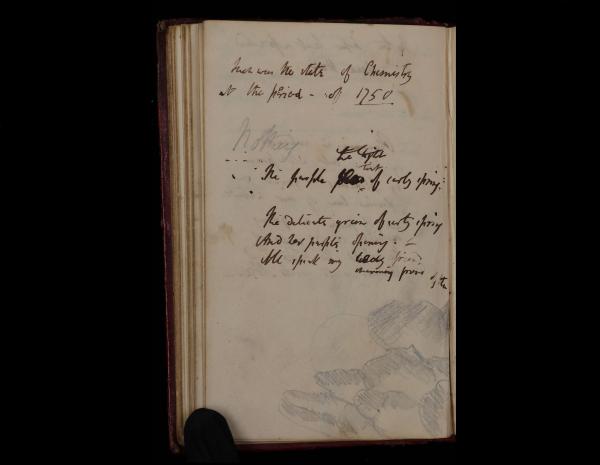 Such was the state of Chemistry
at the period - of 1750
Nothing
the light
tint
The purple of early spring.
The delicate green of early spring
And her purple opening
All speak my lady
charming of thee